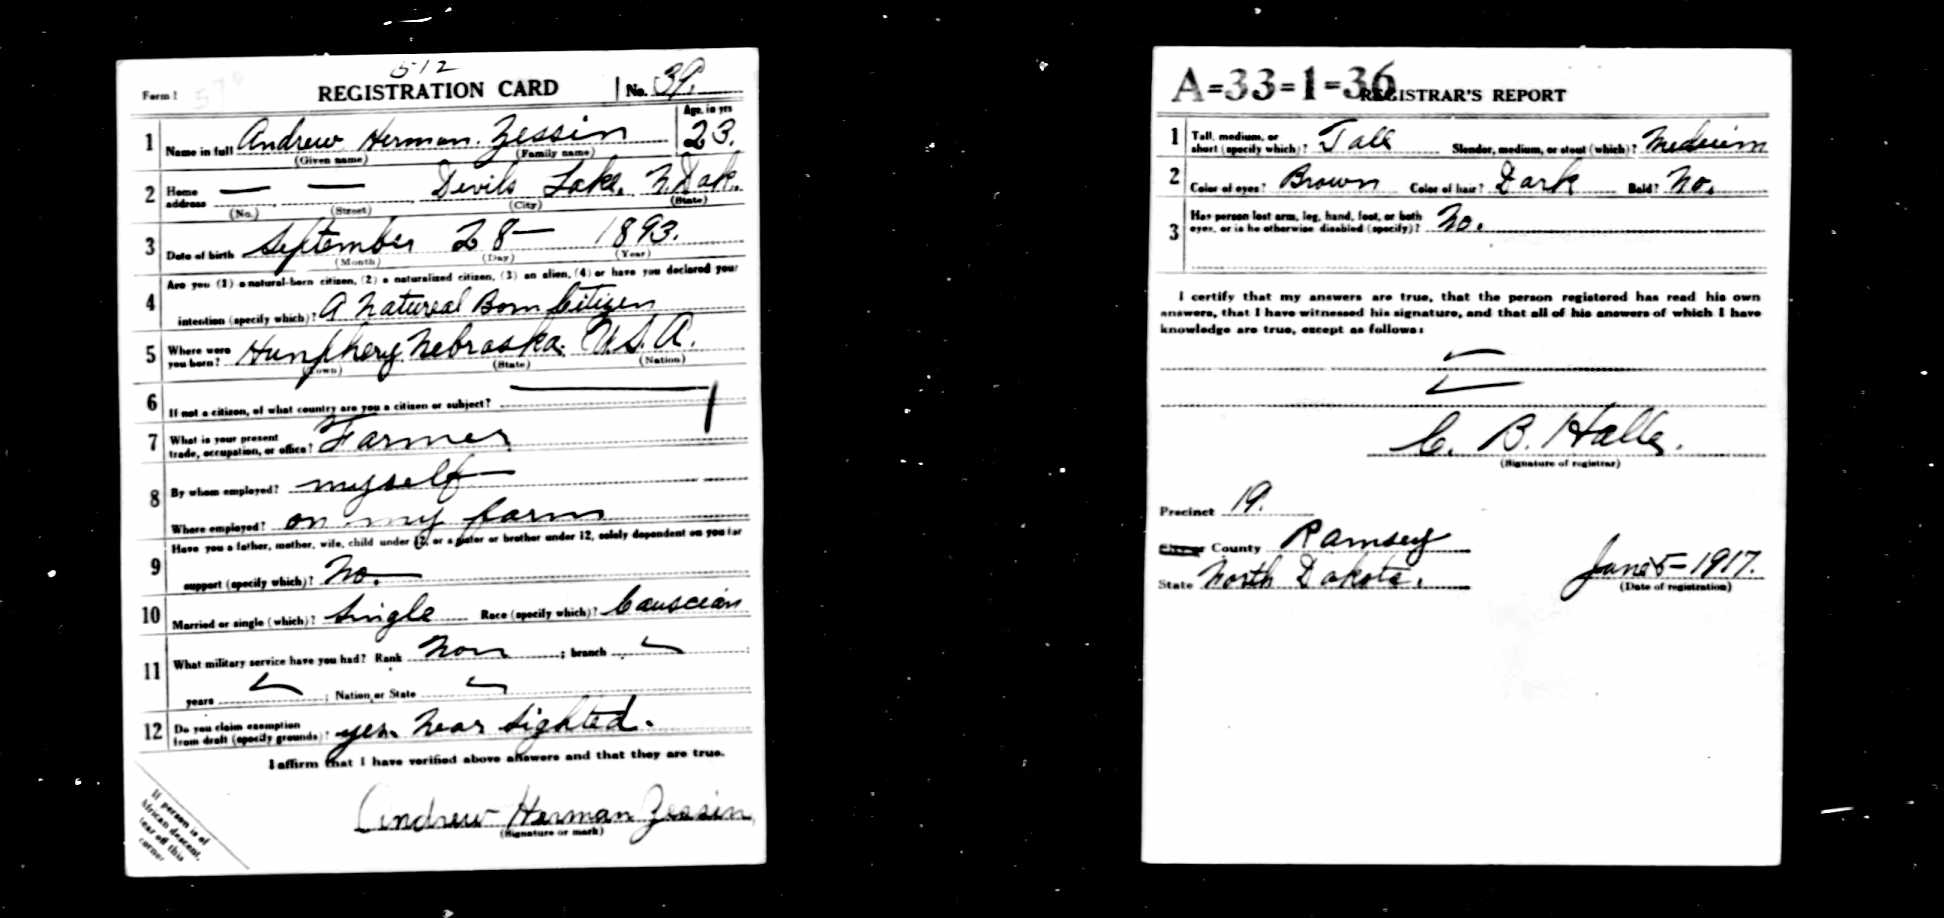 512
Form 1 REGISTRATION CARD No. 39.
1 Name in full Andrew Herman. Zessin Age, in yrs 23.
(Given name) (Family name)
2 Home address — — Devils Lake. N. Dak.
(No.) (Street) (City) (State)
3 Date of birth September 28— 1893.
(Month) (Day) (Year)
4 Are you (1) a natural-born citizen, (2) a naturalized citizen, (3) an alien, (4) or have you declared your
intention (specify which)? A Natureal Born Citizen
5 Where were you born? Humphery Nebraska. U.S.A.
(Town) (State) (Nation)
6 If not a citizen, of what country are you a citizen or subject?
7 What is your present trade, occupation, or office? Farmer
8 By whom employed? myself
Where employed? on my farm
9 Have you a father, mother, wife, child under 12, or a sister or brother under 12, solely dependent on you for
support (specify which)? No.
10 Married or single (which)? Single Race (specify which)? Causcian
11 What military service have you had? Rank Non ; branch
years ; Nation or State
12 Do you claim exemption from draft (specify grounds)? yes. Near Sighted.
I affirm that I have verified above answers and that they are true.
Andrew Herman Zessin
(Signature or mark)
If person is of
African descent,
tear off this
corner
A=33=1=36 REGISTRAR'S REPORT
1 Tall, medium, or short (specify which)? Tall Slender, medium, or stout (which)? Medium
2 Color of eyes? Brown Color of hair? Dark Bald? No.
3 Has person lost arm, leg, hand, foot, or both eyes, or is he otherwise disabled (specify)? No.
I certify that my answers are true, that the person registered has read his own
answers, that I have witnessed his signature, and that all of his answers of which I have
knowledge are true, except as follows:
C. B. Halle.
(Signature of registrar)
Precinct 19.
County Ramsey
State North Dakota. June 5-1917.
(Date of registration)